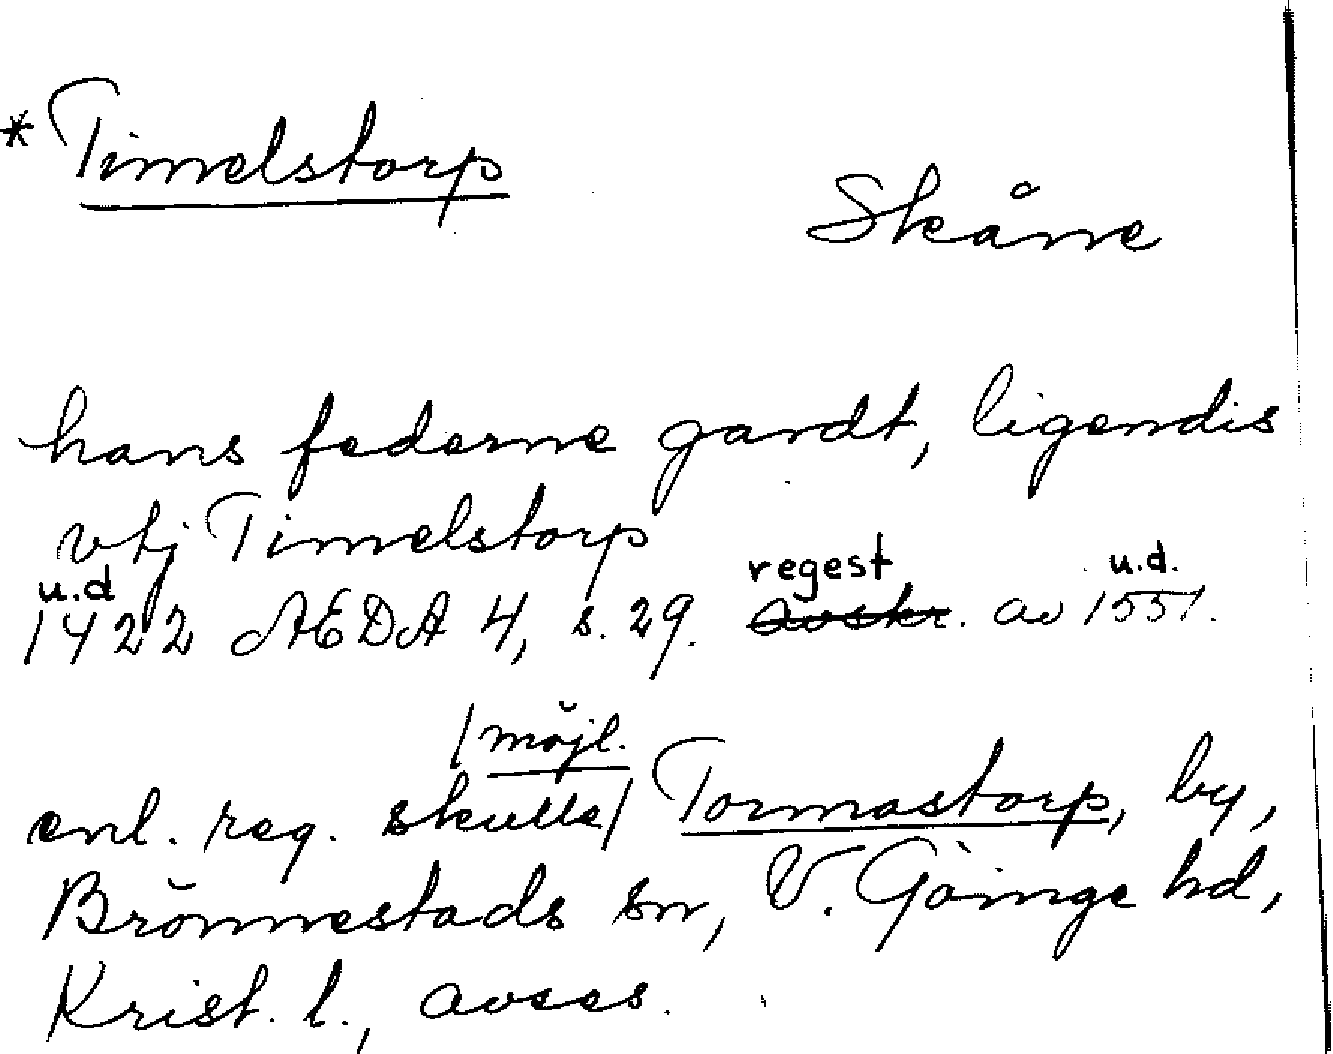 * Timelstorp
Skåne
hans federne gardt, ligendis
vtj Timelstorp
u.d regest u.d.
1422 AEDA 4, s. 29. avskr. av 1551.
/möjl.
enl. reg. skulle/ Tormastorp, by,
Brönnestads sn, V. Göinge hd,
Krist. l., avses.